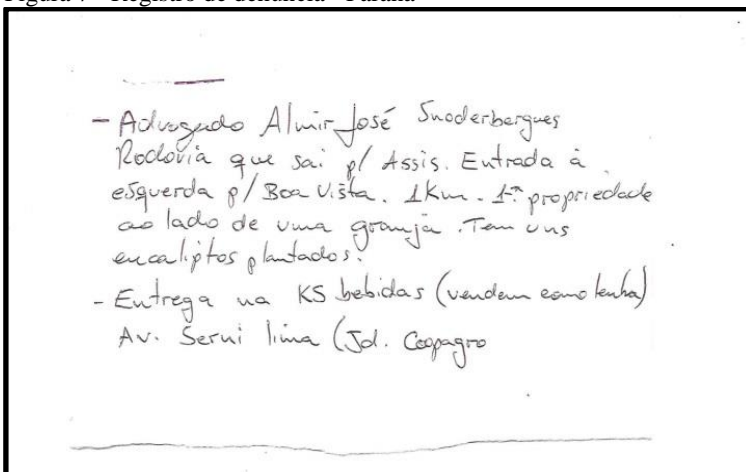 - Advogado Almir José Snoderbergues
Rodovia que sai p/ Assis. Entrada à
esquerda p/ Boa Vista. 1Km. 1ª propriedade
ao lado de uma granja. Tem uns
eucaliptos plantados.
- Entrega na KS bebidas (vendem como lenha)
Av. Serni lima (Jd. Coopagro